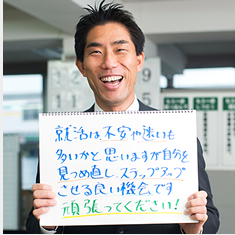 就活は不安や迷いも
多いかと思いますが自分を
見つめ直し、ステップアップ
させる良い機会です
頑張ってください!